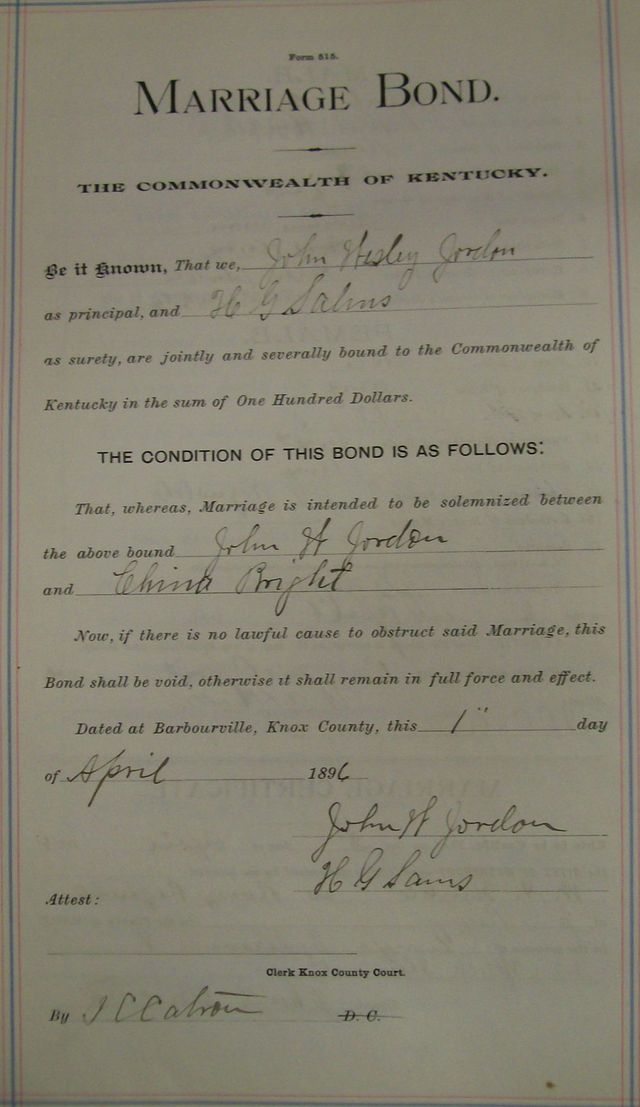 Form 515.
MARRIAGE BOND.
THE COMMONWEALTH OF KENTUCKY.
Be it Known, That we, John Wesley Jordon
as principal, and H G Salms
as surety, are jointly and severally bound to the Commonwealth of
Kentucky in the sum of One Hundred Dollars.
THE CONDITION OF THIS BOND IS AS FOLLOWS:
That, whereas, Marriage is intended to be solemnized between
the above bound John W Jordon
and China Bright
Now, if there is no lawful cause to obstruct said Marriage, this
Bond shall be void, otherwise it shall remain in full force and effect.
Dated at Barbourville, Knox County, this 1" day
of April 1896
John W Jordon
H G Sams
Attest:
Clerk Knox County Court.
By D. C.